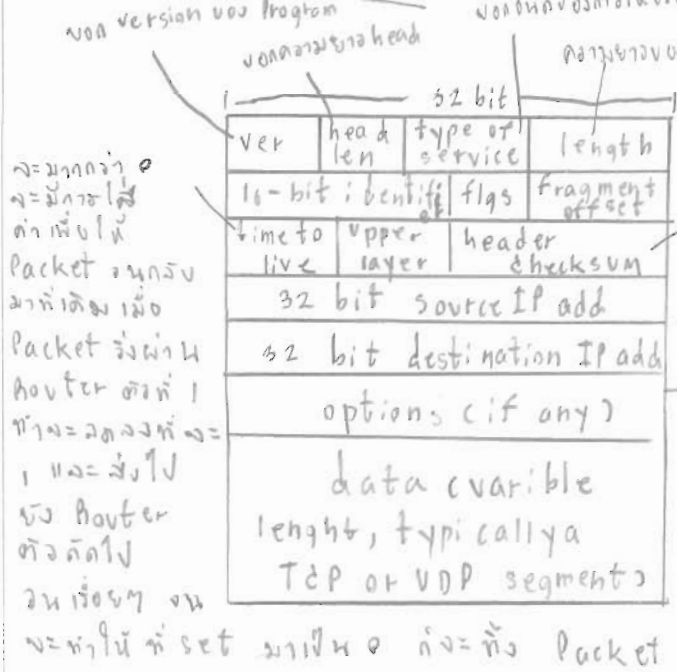 บอก version ของ Program
บอกความยาว head
ความยาวขอ
32 bit
ver
head len
type of service
length
16-bit identifi er
flgs
fragment offset
time to live
upper layer
header checksum
32 bit source IP add
32 bit destination IP add
options (if any)
data (varible
lenght, typicallya
TCP or UDP segment)
จะมากกว่า 0
จะมีการใส่
ค่าเพื่อให้
Packet วนกลับ
มาที่เดิม เมื่อ
Packet วิ่งผ่าน
Router ตัวที่ 1
ค่าจะลดลงทีละ
1 และส่งไป
ยัง Router
ตัวถัดไป
วนเรื่อยๆ จน
จะทำให้ที่ set มาเป็น 0 ก็จะทิ้ง Packet